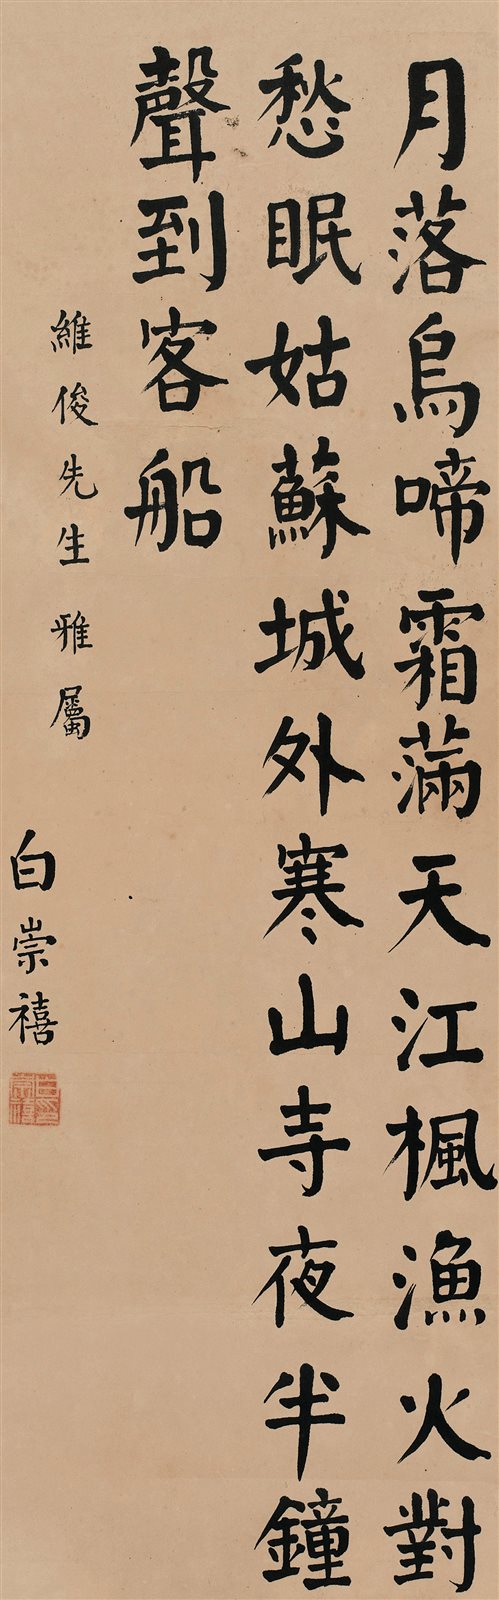 月落烏啼霜滿天江楓漁火對
愁眠姑蘇城外寒山寺夜半鐘
聲到客船
維俊先生雅屬
白崇禧